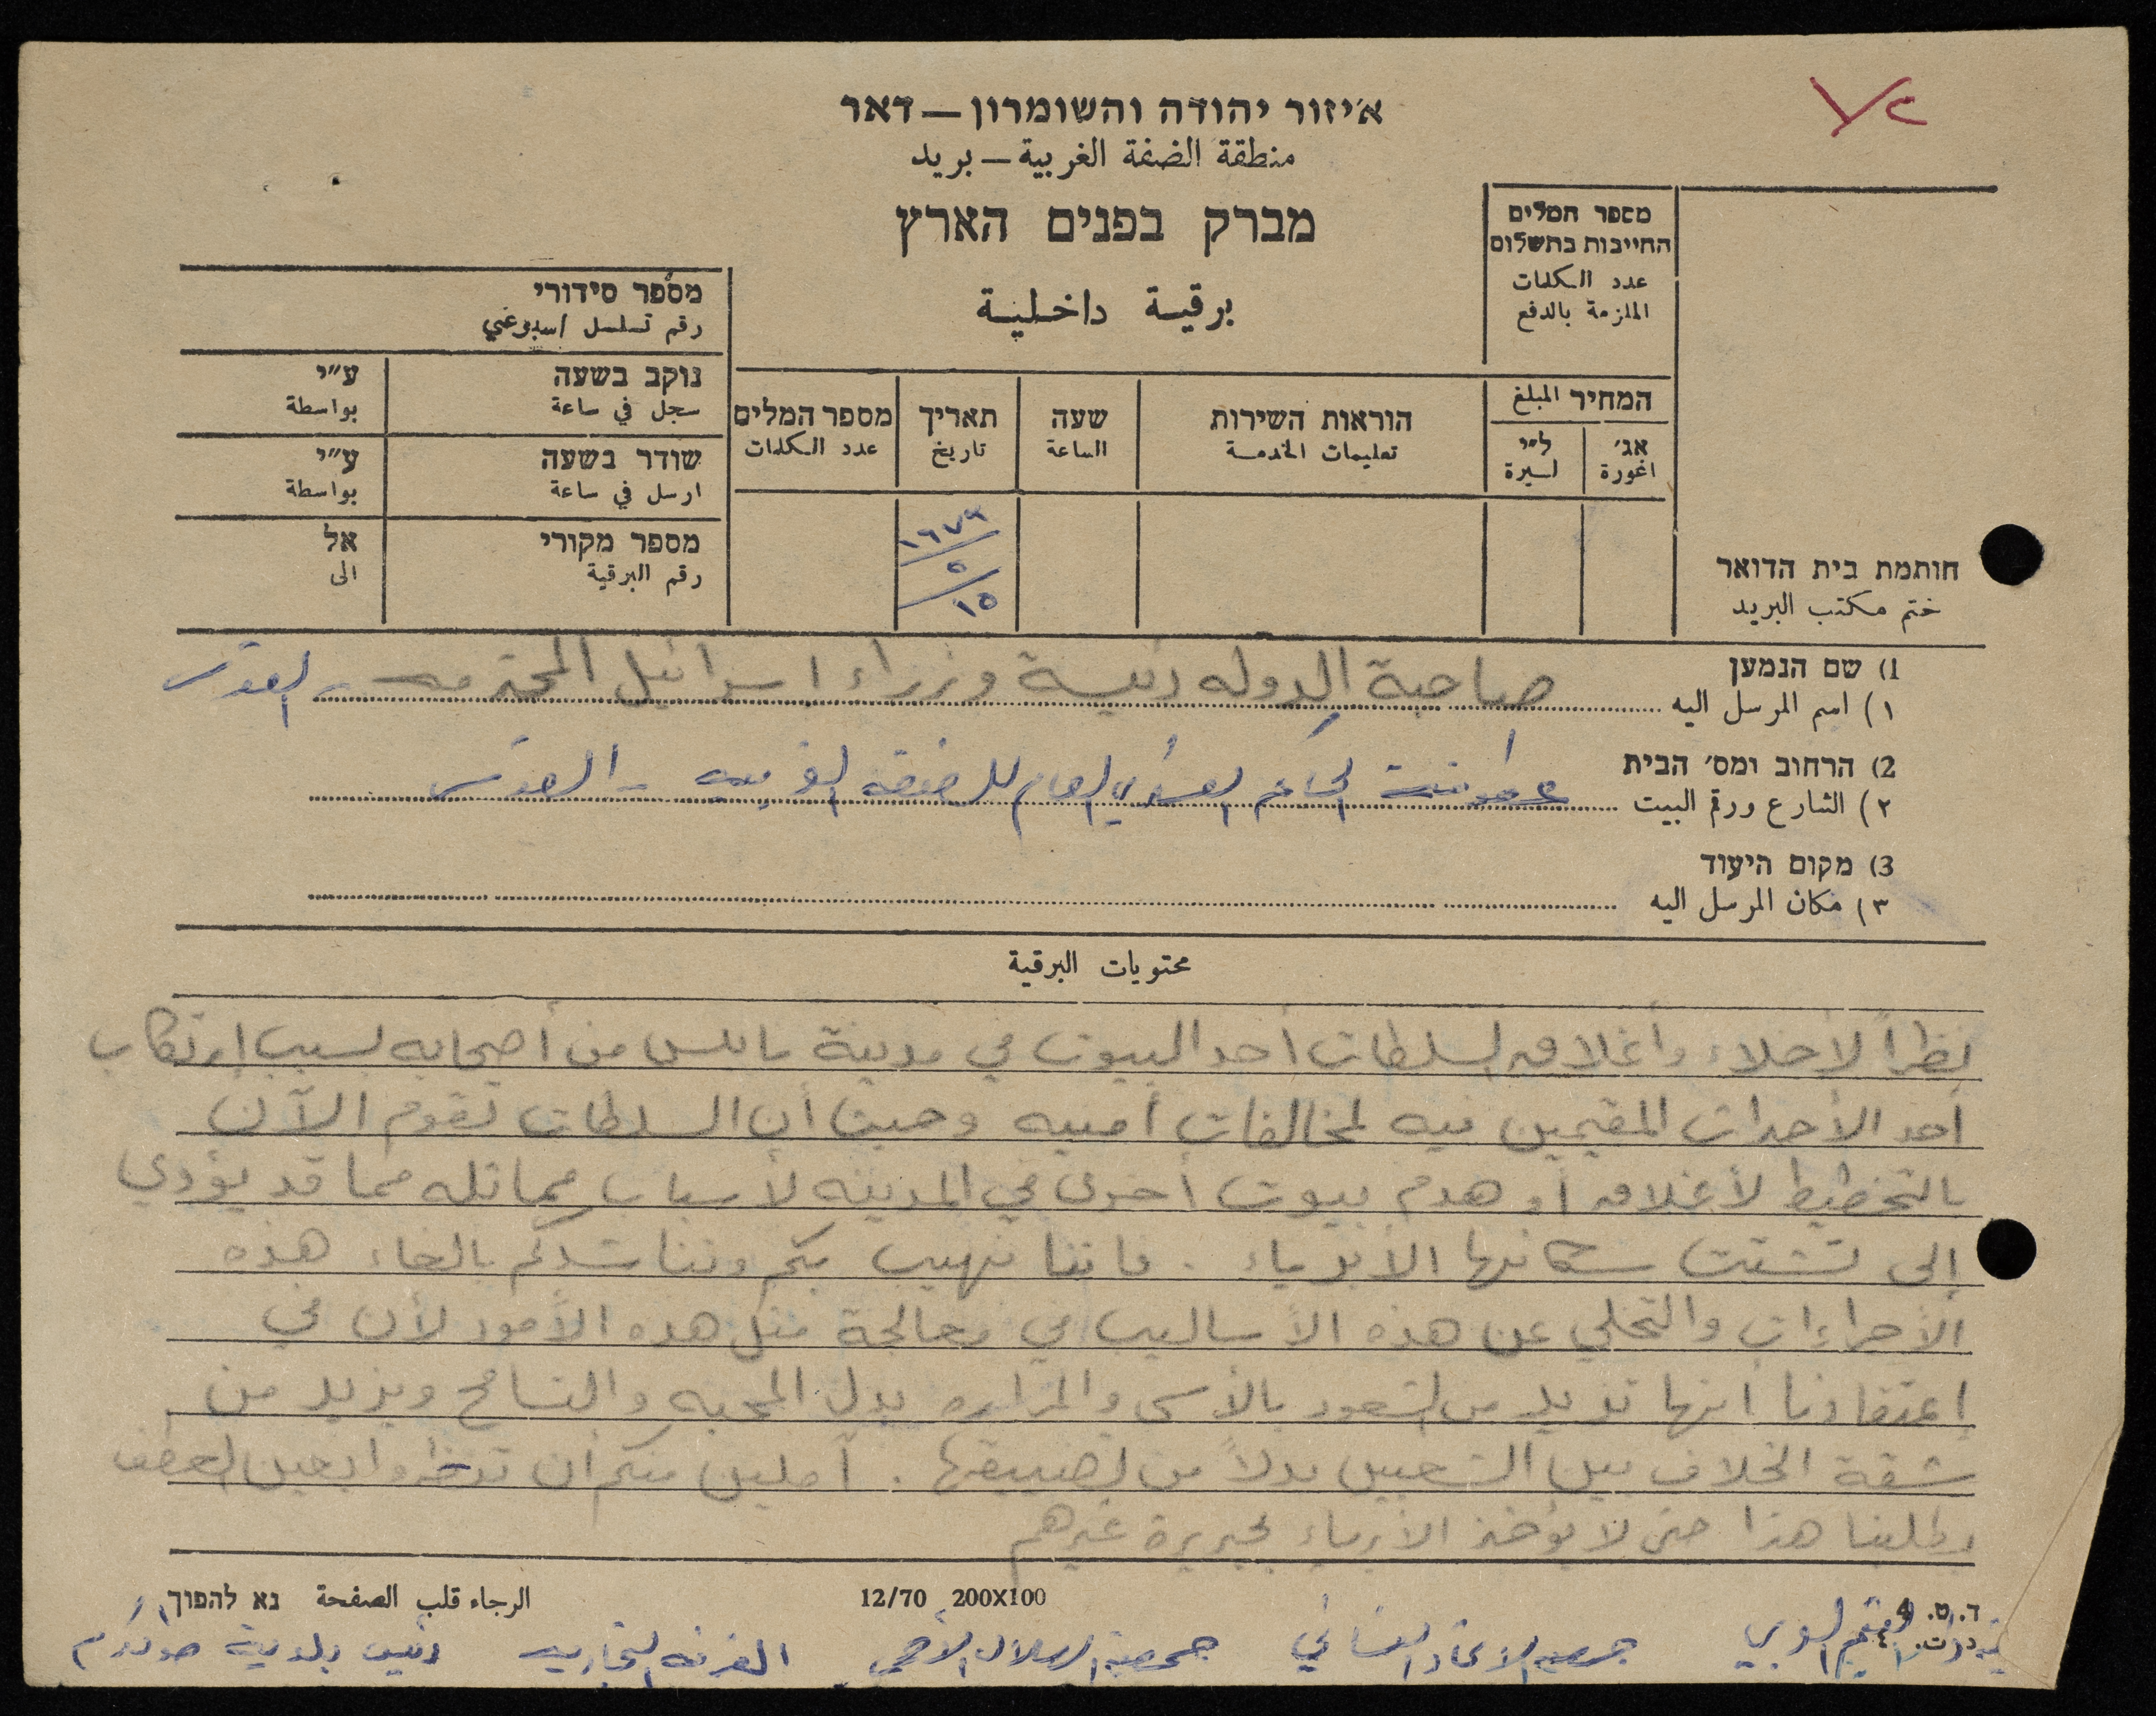 איזור יהודה והשומרון — דאר
منطقة الضفة الغربية — بريد
מברק בפנים הארץ
برقية داخلية
מספר המלים
החייבות בתשלום
عدد الكلمات
الملزمة بالدفع
מספר סידורי
رقم تسلسل اسبوعي
נוקב בשעה ע״י
سجل في ساعة بواسطة
שודר בשעה ע״י
ارسل في ساعة بواسطة
מספר מקורי אל
رقم البرقية الى
המחיר المبلغ
אג׳ ל״י
اغورة ليرة
הוראות השירות
تعليمات الخدمة
שעה
الساعة
תאריך
تاريخ
מספר המלים
عدد الكلمات
١٩٧٢
٥
١٥
חותמת בית הדואר
ختم مكتب البريد
1) שם הנמען
١) اسم المرسل اليه صاحبة الدوله رئيسة وزراء اسرائيل المحترمه - القدس
2) הרחוב ומס׳ הבית
٢) الشارع ورقم البيت بواسطة الحاكم العسكري العام للضفه الغربيه - القدس
3) מקום היעוד
٣) مكان المرسل اليه
محتويات البرقية
نظراً لأخلاء وأغلاق السلطات أحد البيوت في مدينة نابلس من أصحابه بسبب إرتكاب
أحد الأحداث المقيمين فيه لمخالفات أمنيه وحيث أن السلطات تقوم الآن
بالتخطيط لأغلاق أو هدم بيوت أخرى في المدينه لأسباب مماثله مما قد يؤدي
إلى تشتت سكانها الأبرياء . فاننا نهيب بكم ونناشدكم بالغاء هذه
الأجراءات والتخلي عن هذه الأساليب في معالجة مثل هذه الأمور لأن في
إعتقادنا انها تزيد من الشعور بالأسى والمراره بدل المحبه والتسامح ويزيد من
شقة الخلاف بين الشعبين بدلاً من تضييقها . آملين منكم أن تنظروا بعين العطف
بطلبنا هذا حتى لا يؤخذ الأبرياء بجريرة غيرهم
ד. ט. 4
12/70 200X100
الرجاء قلب الصفحة נא להפוך
جمعية الاتحاد النسائي جمعية الهلال الأحمر الغرفه التجاريه رئيس بلدية طولكرم